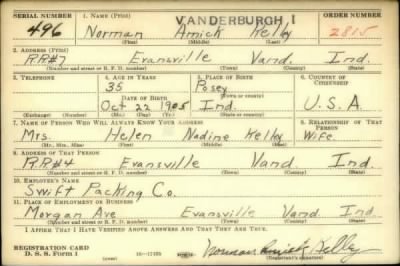 SERIAL NUMBER 1. NAME (Print) VANDERBURGH 1 ORDER NUMBER
496 Norman Amick Kelley 2815
(First) (Middle) (Last)
2. ADDRESS (Print)
RR#7 Evansville Vand. Ind.
(Number and street or R. F. D. number) (Town) (County) (State)
3. TELEPHONE 4. AGE IN YEARS 5. PLACE OF BIRTH 6. COUNTRY OF CITIZENSHIP
35 Posey
DATE OF BIRTH (Town or county)
Oct 22 1905 Ind. U.S.A.
(Exchange) (Number) (Mo.) (Day) (Yr.) (State or country)
7. NAME OF PERSON WHO WILL ALWAYS KNOW YOUR ADDRESS 8. RELATIONSHIP OF THAT PERSON
Mrs. Helen Nadine Kelley Wife
(Mr., Mrs., Miss) (First) (Middle) (Last)
9. ADDRESS OF THAT PERSON
RR#4 Evansville Vand Ind.
(Number and street or R. F. D. number) (Town) (County) (State)
10. EMPLOYER'S NAME
Swift Packing Co.
11. PLACE OF EMPLOYMENT OR BUSINESS
Morgan Ave Evansville Vand. Ind
(Number and street or R. F. D. number) (Town) (County) (State)
I AFFIRM THAT I HAVE VERIFIED ABOVE ANSWERS AND THAT THEY ARE TRUE.
REGISTRATION CARD Norman Amick Kelley
D. S. S. Form 1 (over) (Registrant's signature)